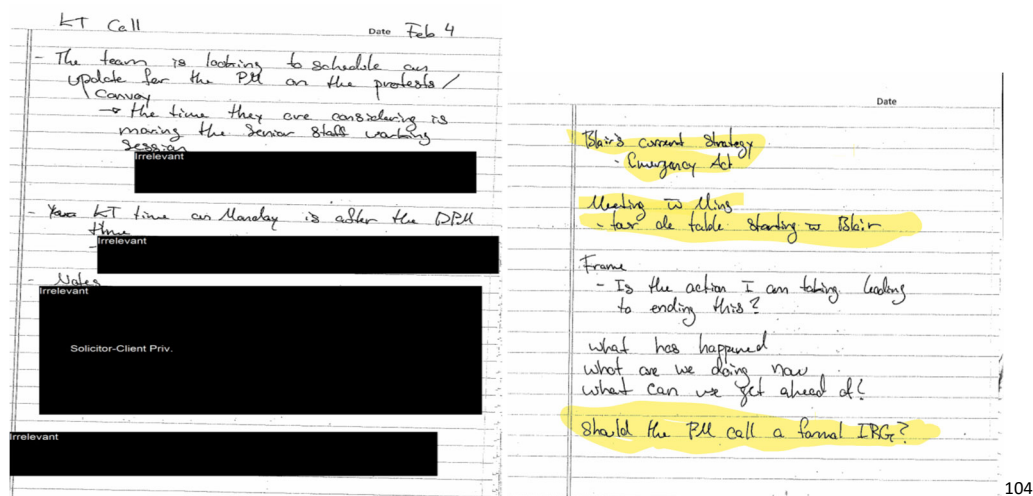 KT Call
Date Feb 4
- The team is looking to schedule an
update for the PM on the protests/
Convoy
→ the time they are considering is
moving the senior staff working
session
Irrelevant
- KT time on Monday is after the DPM
time
-
Irrelevant
- Notes
Irrelevant
Solicitor-Client Priv.
Irrelevant
Date
Blair's current strategy
- Emergency Act
Meeting w Mins
- tour de table starting w Blair
Frame
- Is the action I am taking leading
to ending this?
what has happened
what are we doing now
what can we get ahead of?
Should the PM call a formal IRG?
104